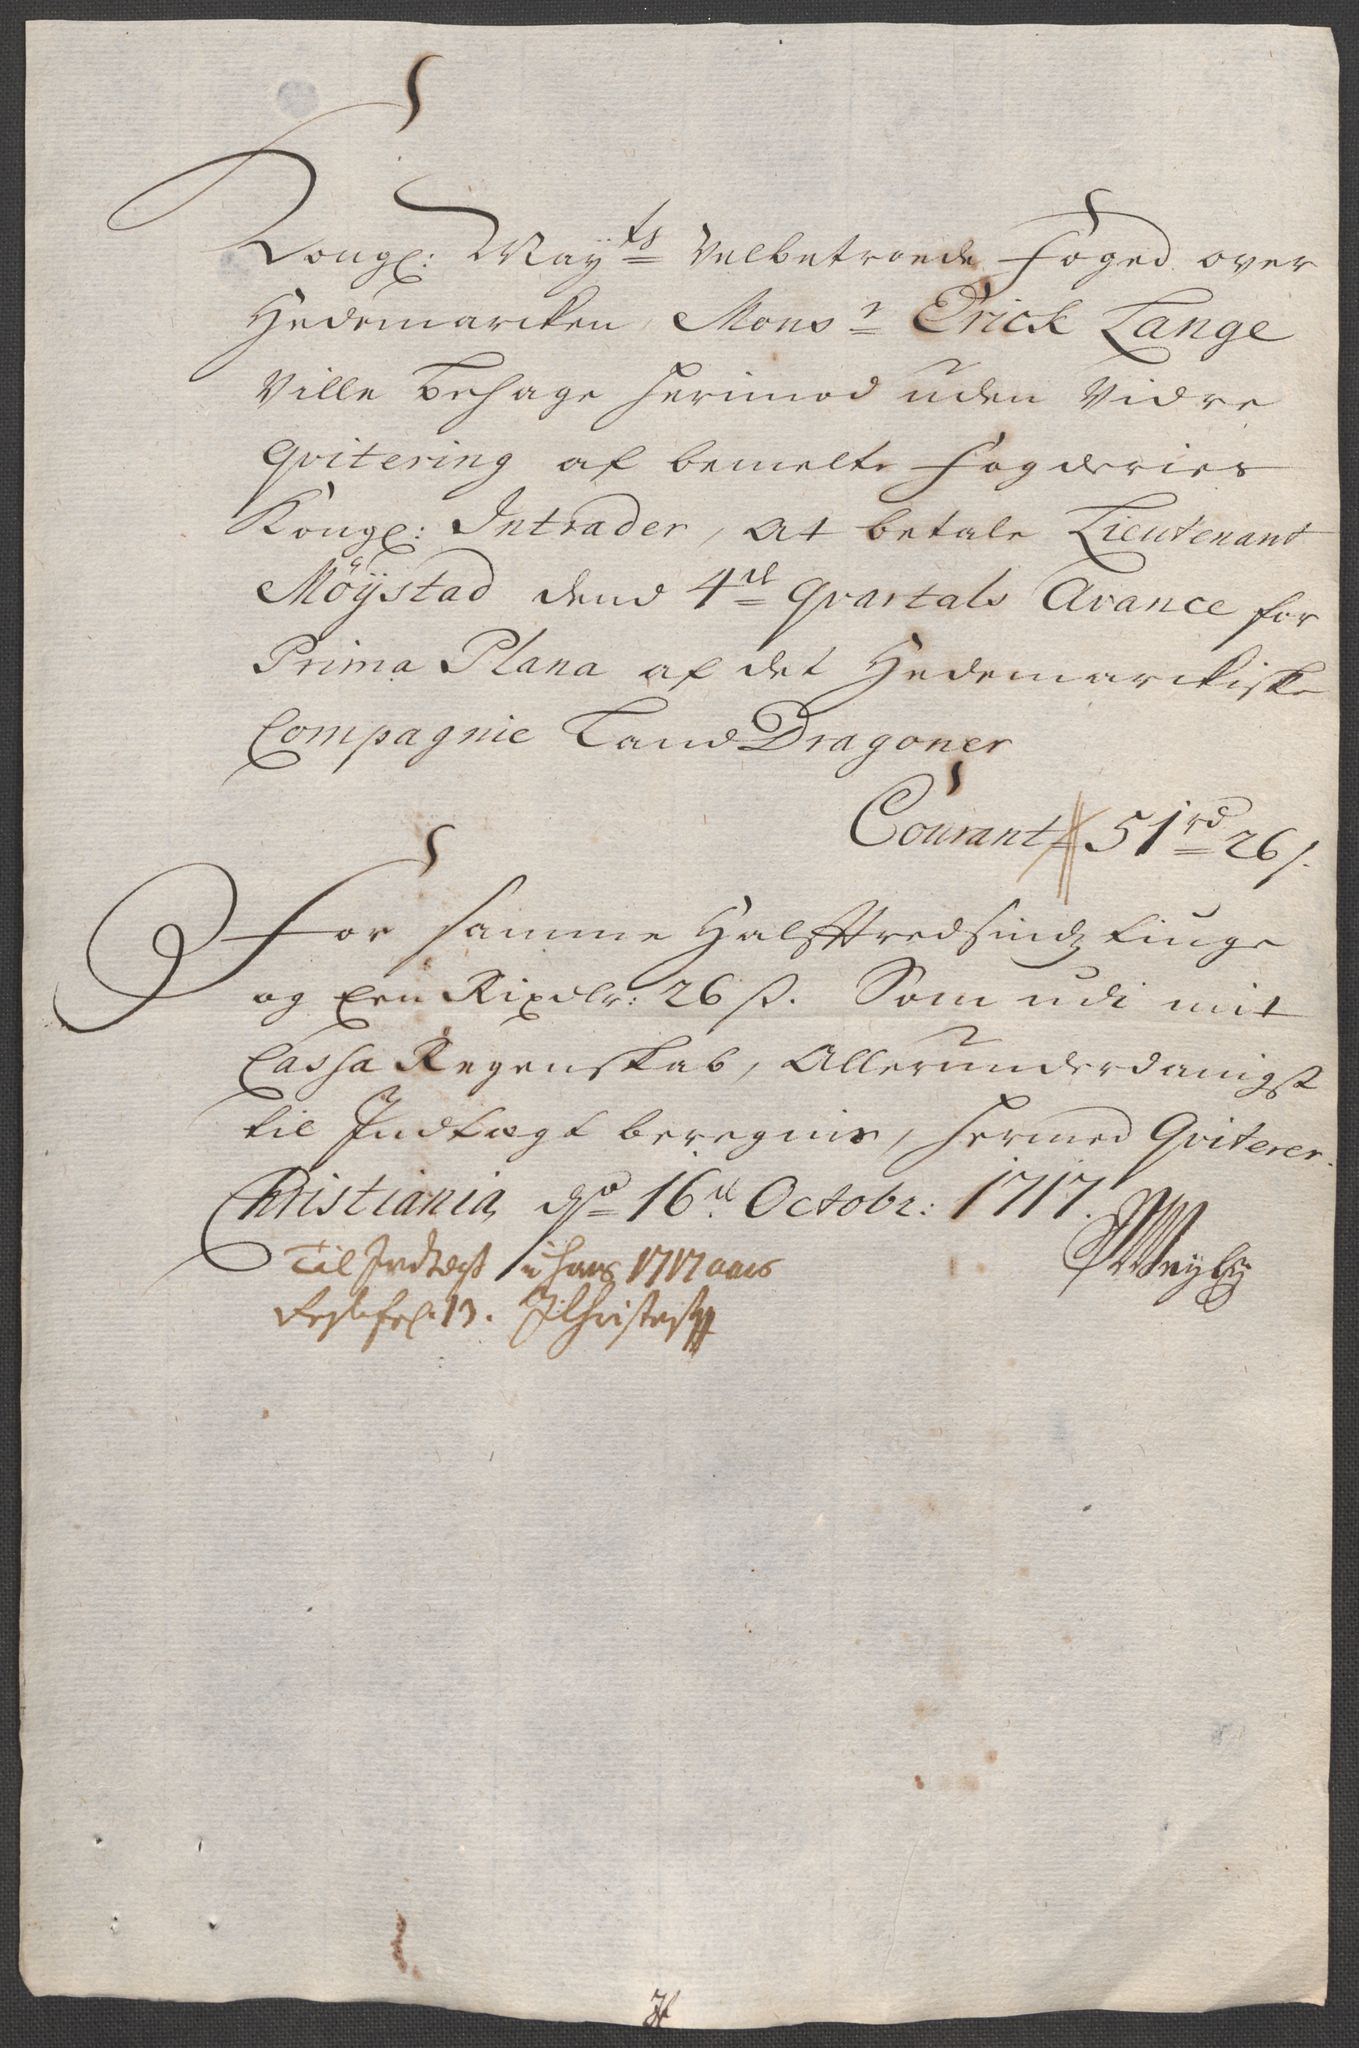 Kongl: May^ts Velbetroede Foged over
Hedemarcken, Mons^r Erick Lange
Ville behage herimod uden Vidre
qvitering af bemelte Fogderies
Kongl: Intrader, at betale Lieutenant
Möÿstad dend 4^de qvartals Avance for
Prima Plana af det Hedemarckiske
Compagnie Land Dragoner
Courant 51^rd 26 s.
For samme Halfftredsindztiuge
og Een Rixdlr: 26 s. Som udi mit
Cassa Regenskab, Allerunderdanigst
til Indtægt beregnis, hermed Qviterer.
Christiania d 16^de Octobr: 1717.
Til Indtægt i hans 1717 aars
fol. 13.